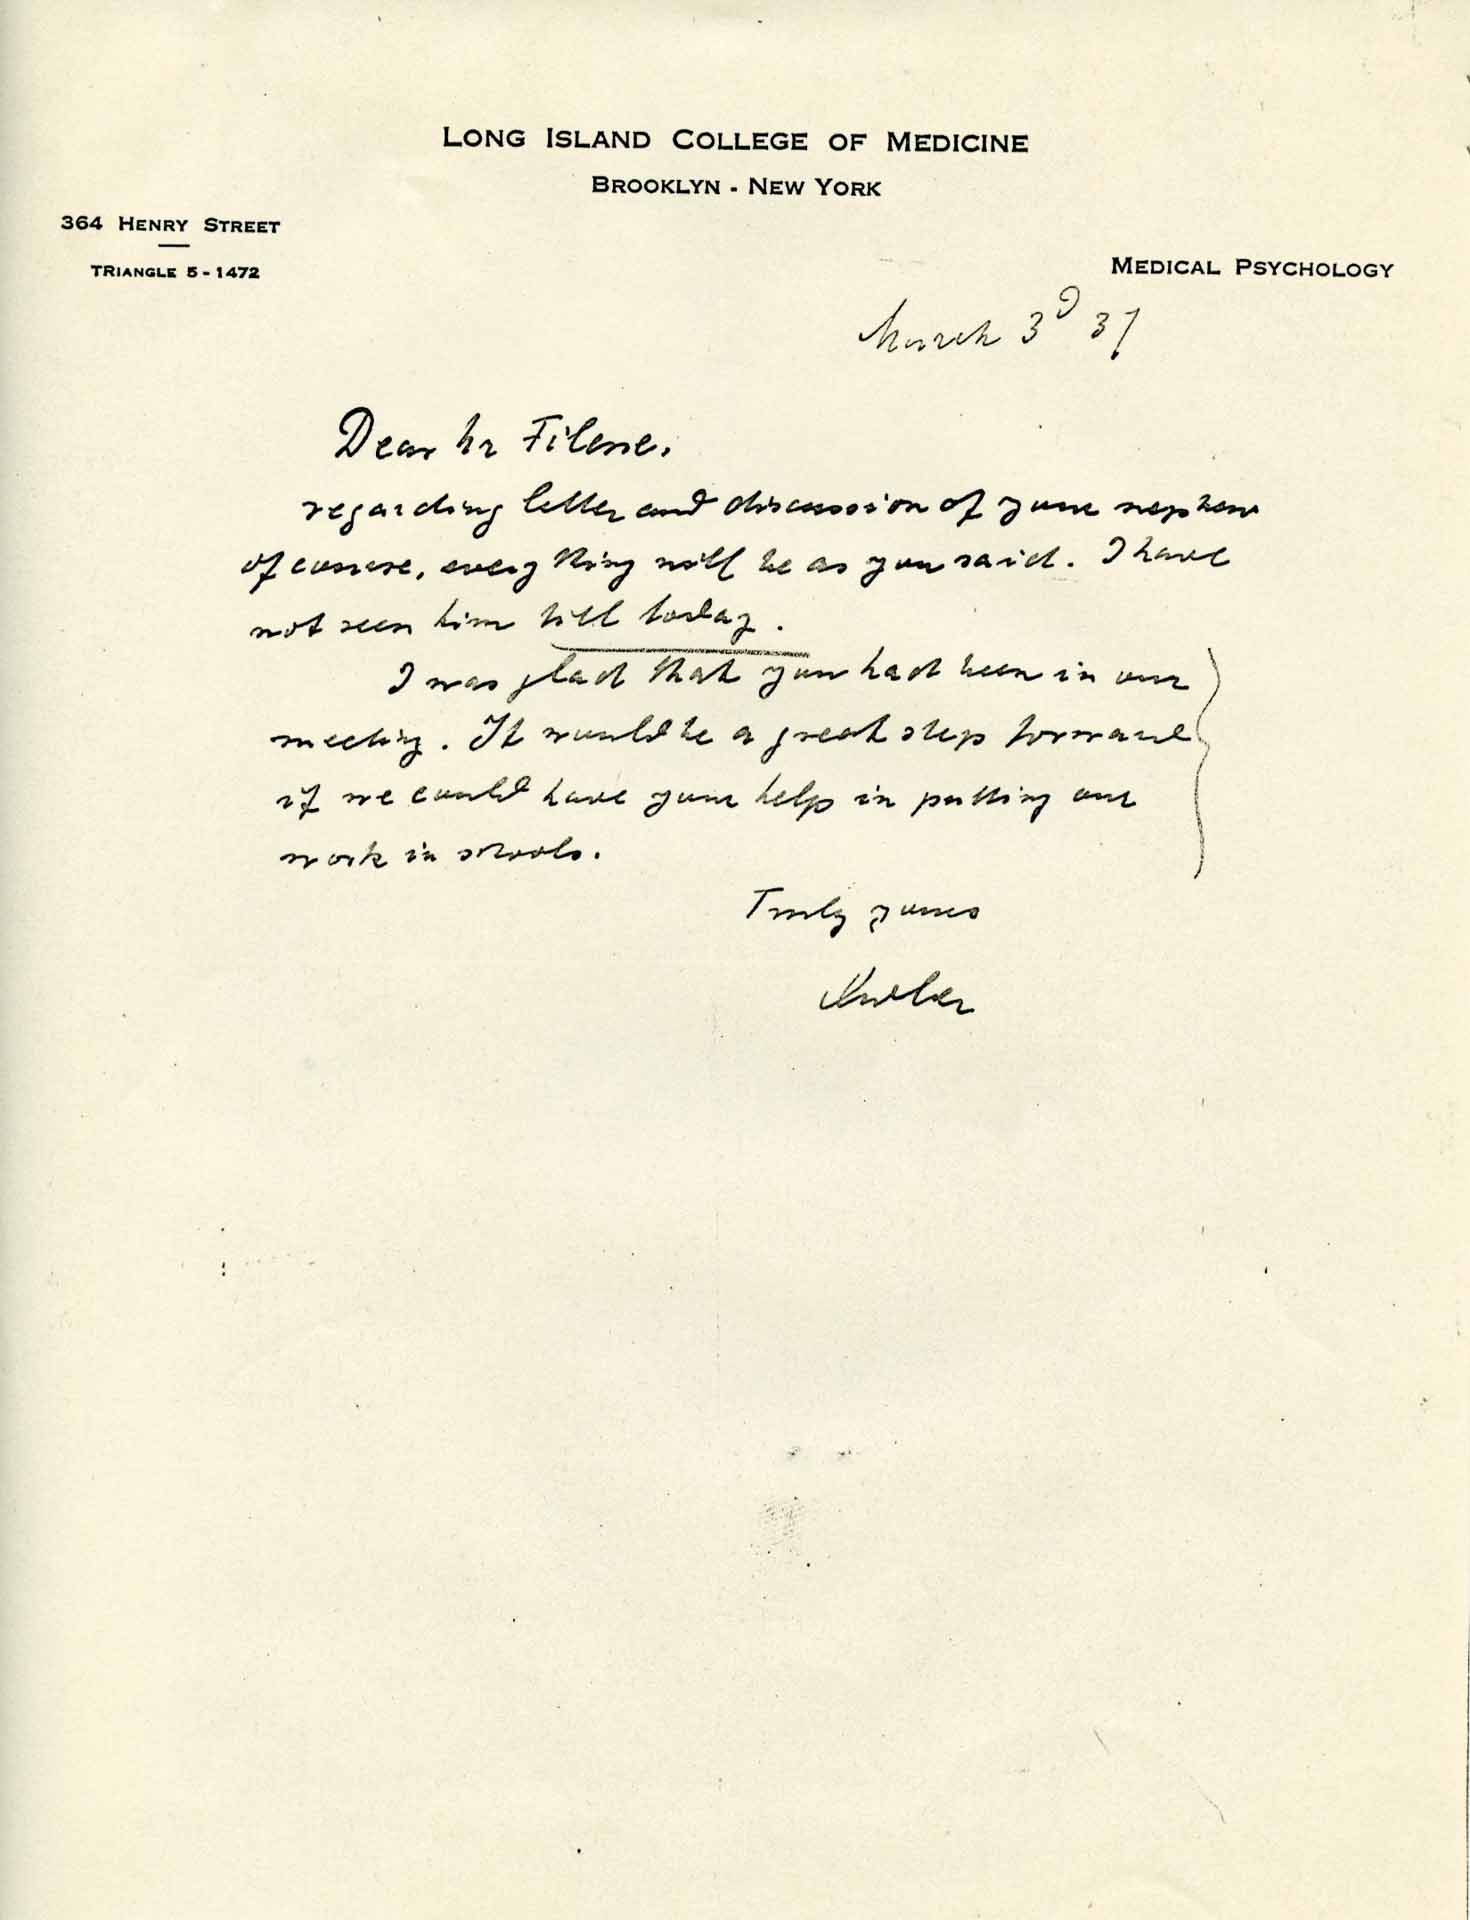 LONG ISLAND COLLEGE OF MEDICINE
BROOKLYN - NEW YORK
364 HENRY STREET
TRIANGLE 5-1472
MEDICAL PSYCHOLOGY
March 3d 37
Dear Mr Filene.
regarding letter and discussion of your nephew
of course, every thing will be as you said. I have
not seen him till today.
I was glad that you had been in our
meeting. It would be a great step forward
if we could have your help in putting our
work in schools.
Truly yours